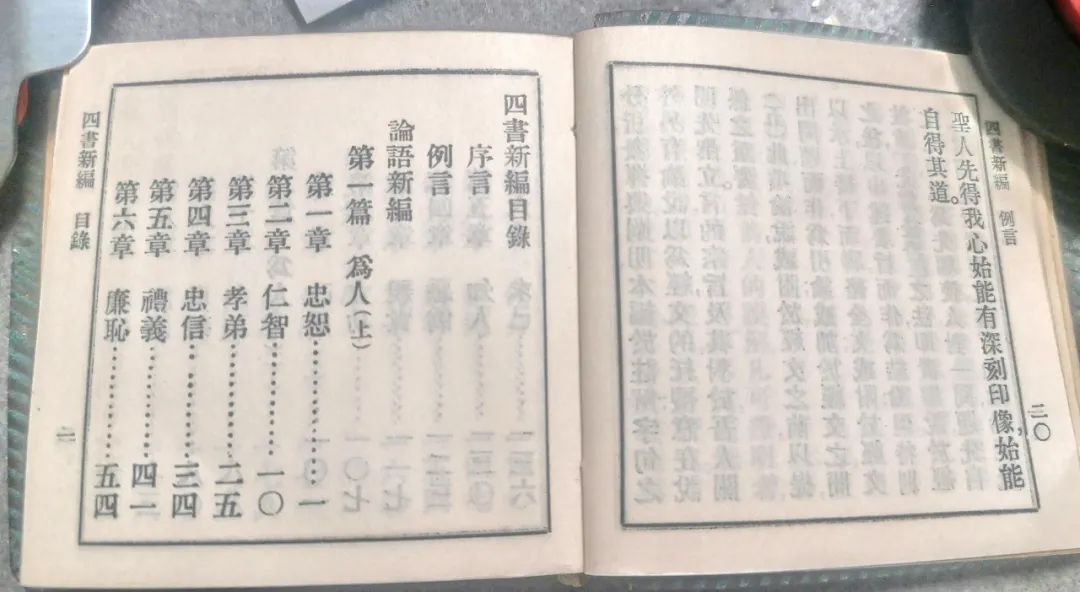 四書新編 例言
二〇
聖人先得我心始能有深刻印像，始能
自得其道。
四書新編目錄
序言
例言
論語新編
第一篇 爲人（上）
第一章 忠恕…………一
第二章 仁智…………一〇
第三章 孝弟…………二五
第四章 忠信…………三四
第五章 禮義…………四一
第六章 廉恥…………五四
四書新編 目錄
一